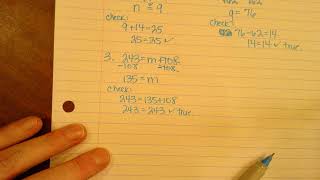 n = 9
check:
9+14=25
25=25 ✓
g = 76
76-62=14
14=14 ✓ true
3. 243=m+108
-108 -108
135=m
check:
243=135+108
243=243 ✓ true